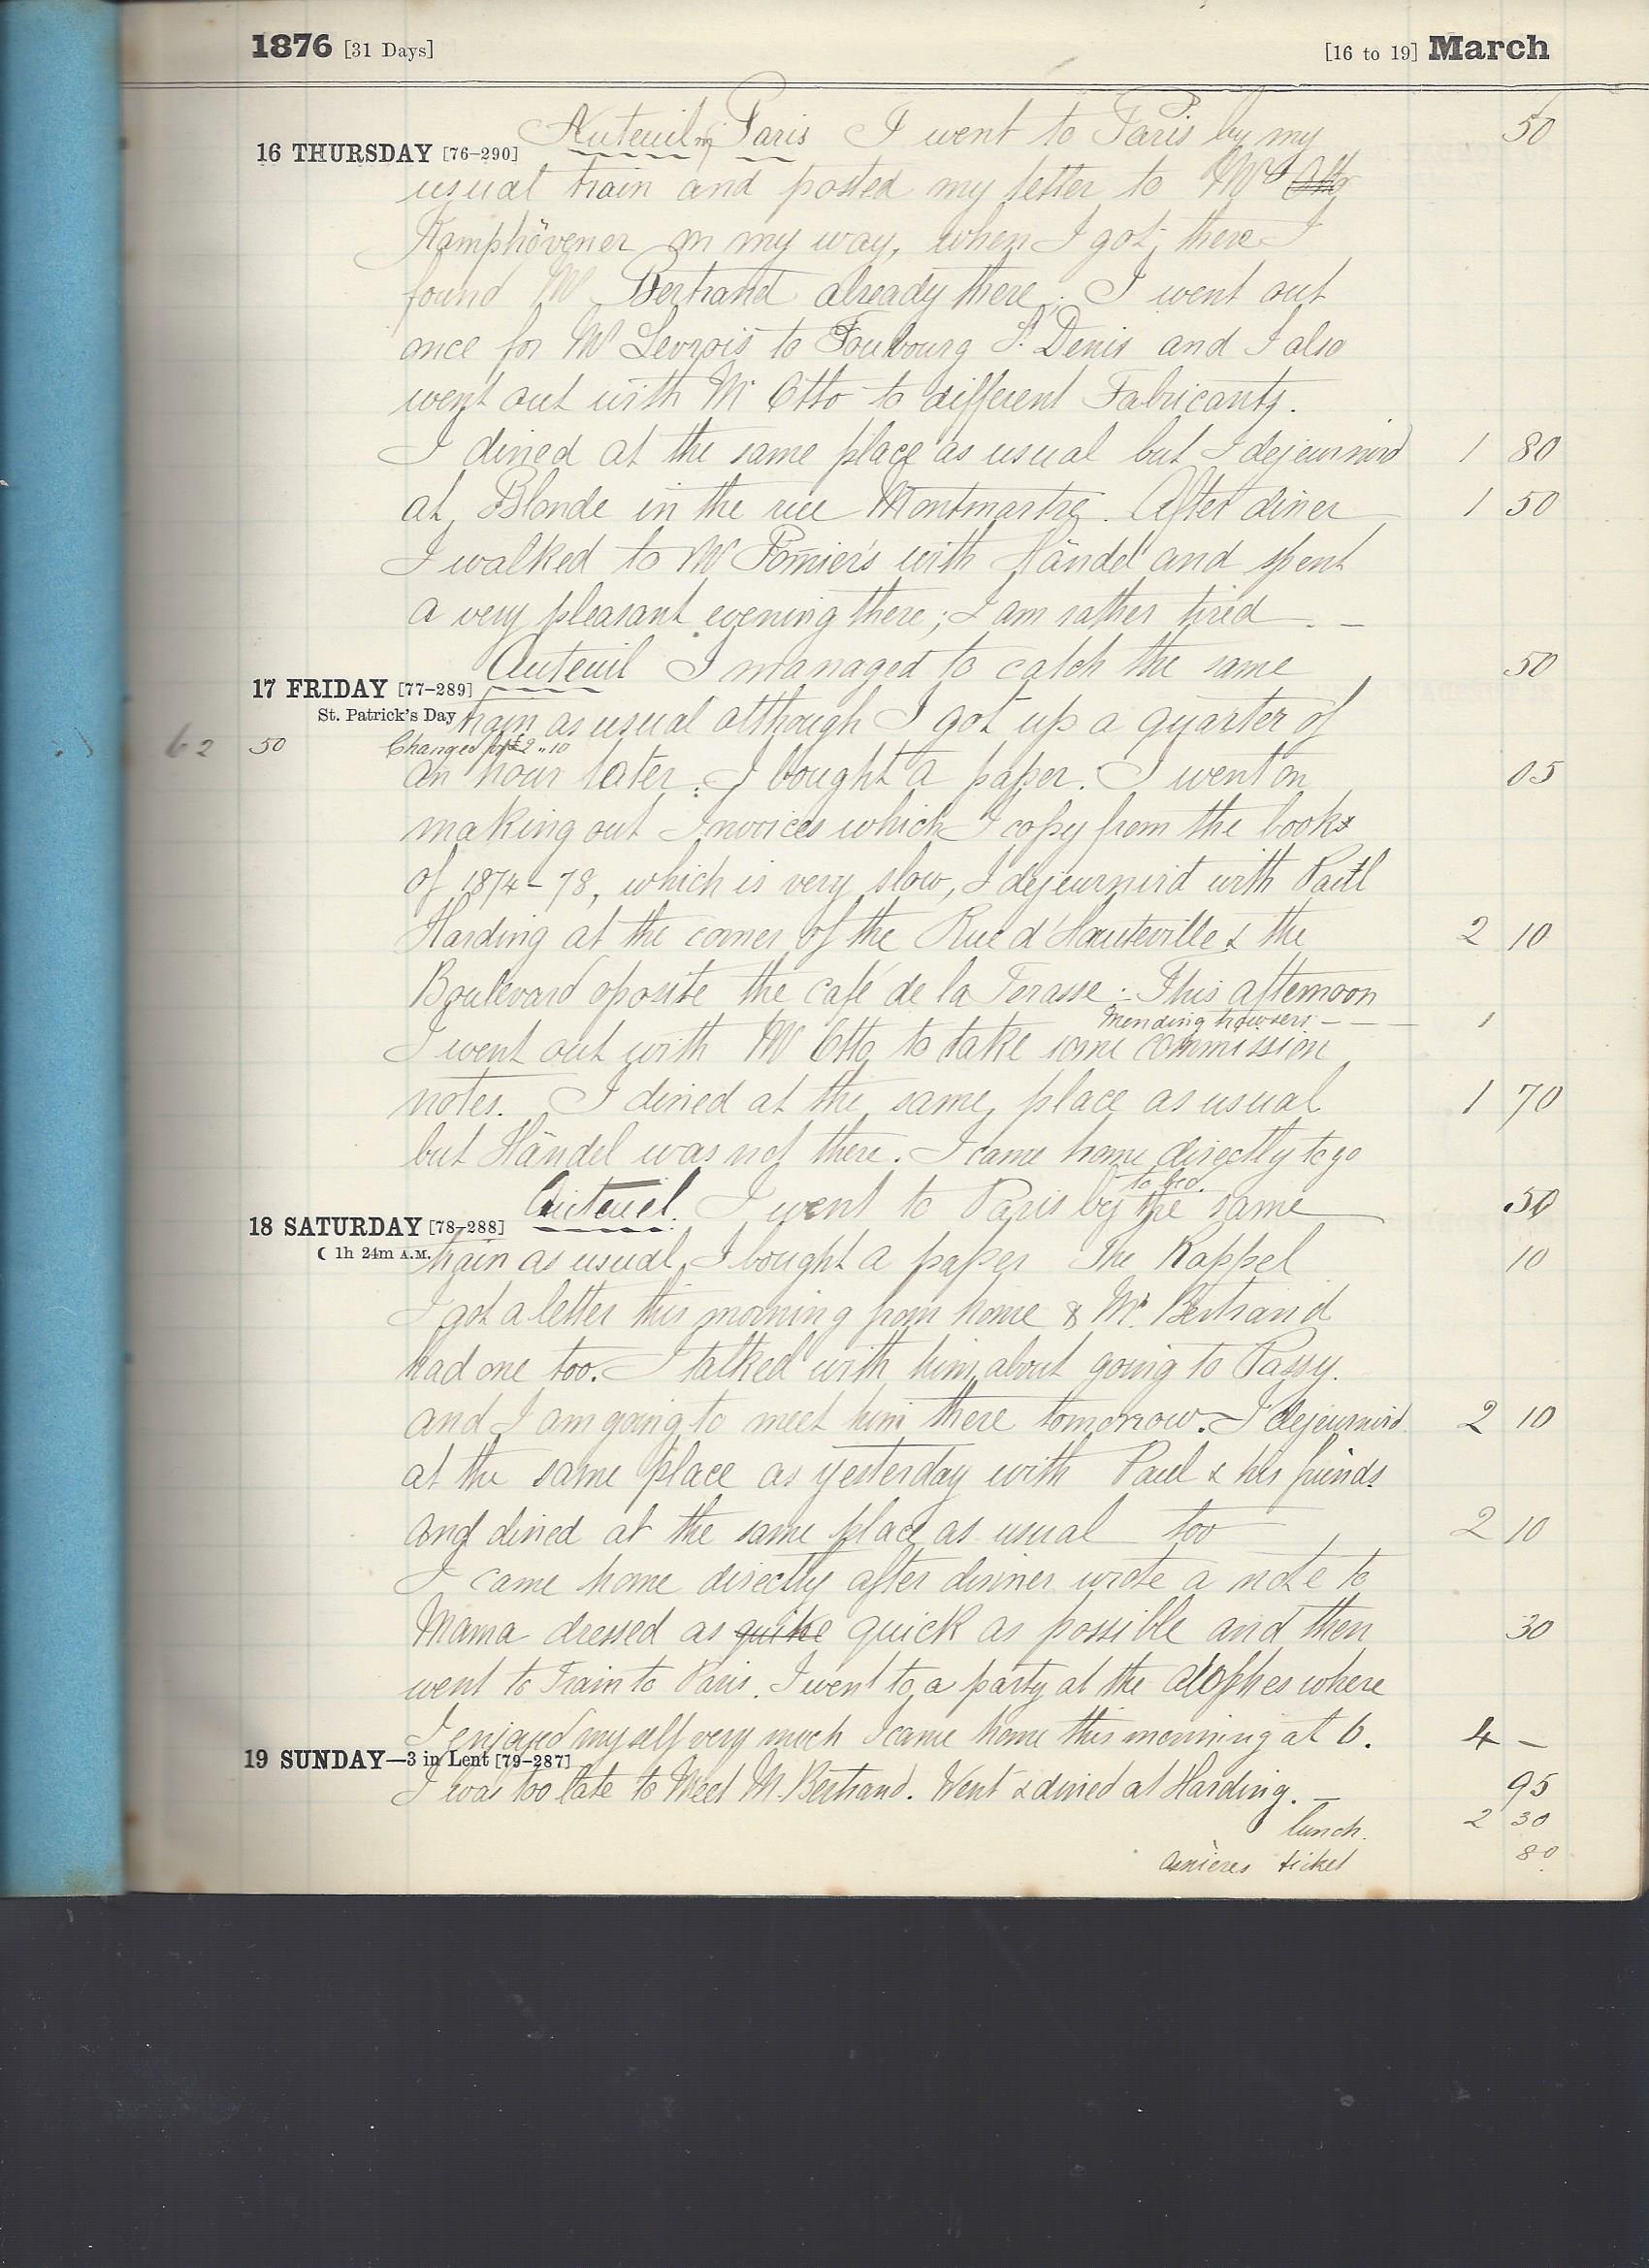 1876 [31 Days] [16 to 19] March
Auteuil, Paris I went to Paris by my 50
16 THURSDAY [76-290]
usual train and posted my letter to Mrs
Kamphövener on my way, when I got there I
found Mr Bertrand already there. I went out
once for Mr to Foubourg St. Denis and I also
went out with Mr Otto to different Fabricants.
I dined at the same place as usual but I dejeurnird 1 80
at Blonde in the rue Montmartre. After diner 1 50
I walked to Mr with Händel and spent
a very pleasant evening there; I am rather tired. —
Auteuil I managed to catch the same 50
17 FRIDAY [77-289]
St. Patrick's Day train as usual although I got up a quarter of
62 50 Changed for £2..10
an hour later. I bought a paper. I went on 05
making out Invoices which I copy from the books
of 1874-78, which is very slow, I dejeurnird with Paul
Harding at the corner of the Rue d'Hauteville & the 2 10
Boulevard oposite the café de la Terasse. This afternoon
Mending trowsers — — — 1
I went out with Mr Otto to take some commission
notes. I dined at the same place as usual 1 70
but Händel was not there. I came home directly to go
to bed.
Auteuil. I went to Paris by the same 50
18 SATURDAY [78-288]
☾ 1h 24m A.M. train as usual, I bought a paper The Rappel 10
I got a letter this morning from home & Mr. Bertrand
had one too. I talked with him about going to Passy.
and I am going to meet him there tomorrow. I dejeurnird 2 10
at the same place as yesterday with Paul & his friends
and dined at the same place as usual too 2 10
I came home directly after dinner wrote a note to
Mama dressed as quike quick as possible and then 30
went to Train to Paris. I went to a party at the where
I enjoyed myself very much I came home this morning at 6. 4 —
19 SUNDAY—3 in Lent [79-287]
I was too late to Meet M. Bertrand. Went & dined at Harding. — 95
lunch. 2 30
Asnières ticket 80